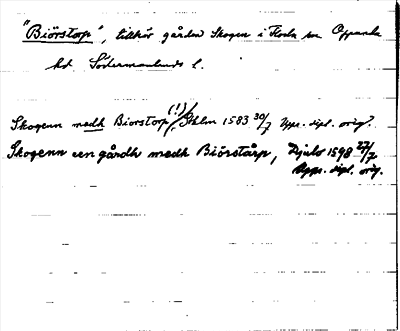 "Biörstorp", tillhör gården Skogen i Floda sn Oppunda
hd Södermanlands l.
Skogenn medh Biorstorp (!), Sthlm 1583 30/7 Upps. dipl. orig.
Skogenn een gårdh medh Biörstårp, Djulö 1598 27/7
Upps. dipl. orig.